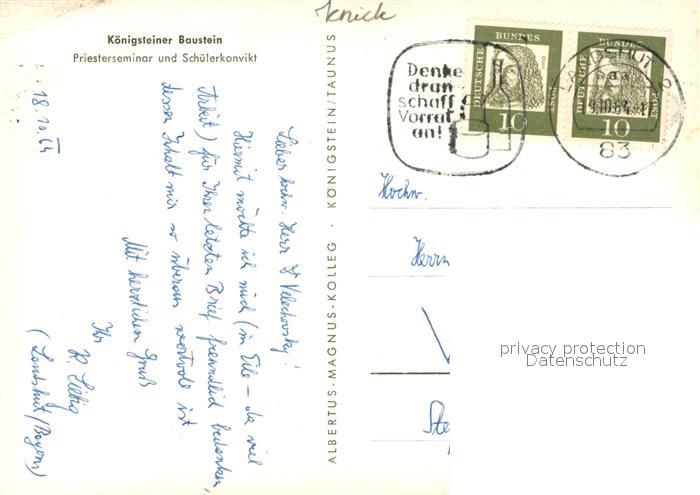 Knick
Königsteiner Baustein
Priesterseminar und Schülerkonvikt
18.10.64
Lieber hochw. Herr Dr Velechovsky!
Hiermit möchte ich mich (in Eile – da viel
Arbeit) für Ihren letzten Brief freundlich bedanken,
dessen Inhalt mir so überaus wertvoll ist.
Mit herzlichem Gruß
Ihr
(Landshut/Bayern)
ALBERTUS-MAGNUS-KOLLEG · KÖNIGSTEIN/TAUNUS
Denke
dran
schaff
Vorrat
an!
DEUTSCHE BUNDESPOST
10
DEUTSCHE BUNDESPOST
10
LANDSHUT 2
83
Hochw.
Herrn
Ste
privacy protection
Datenschutz